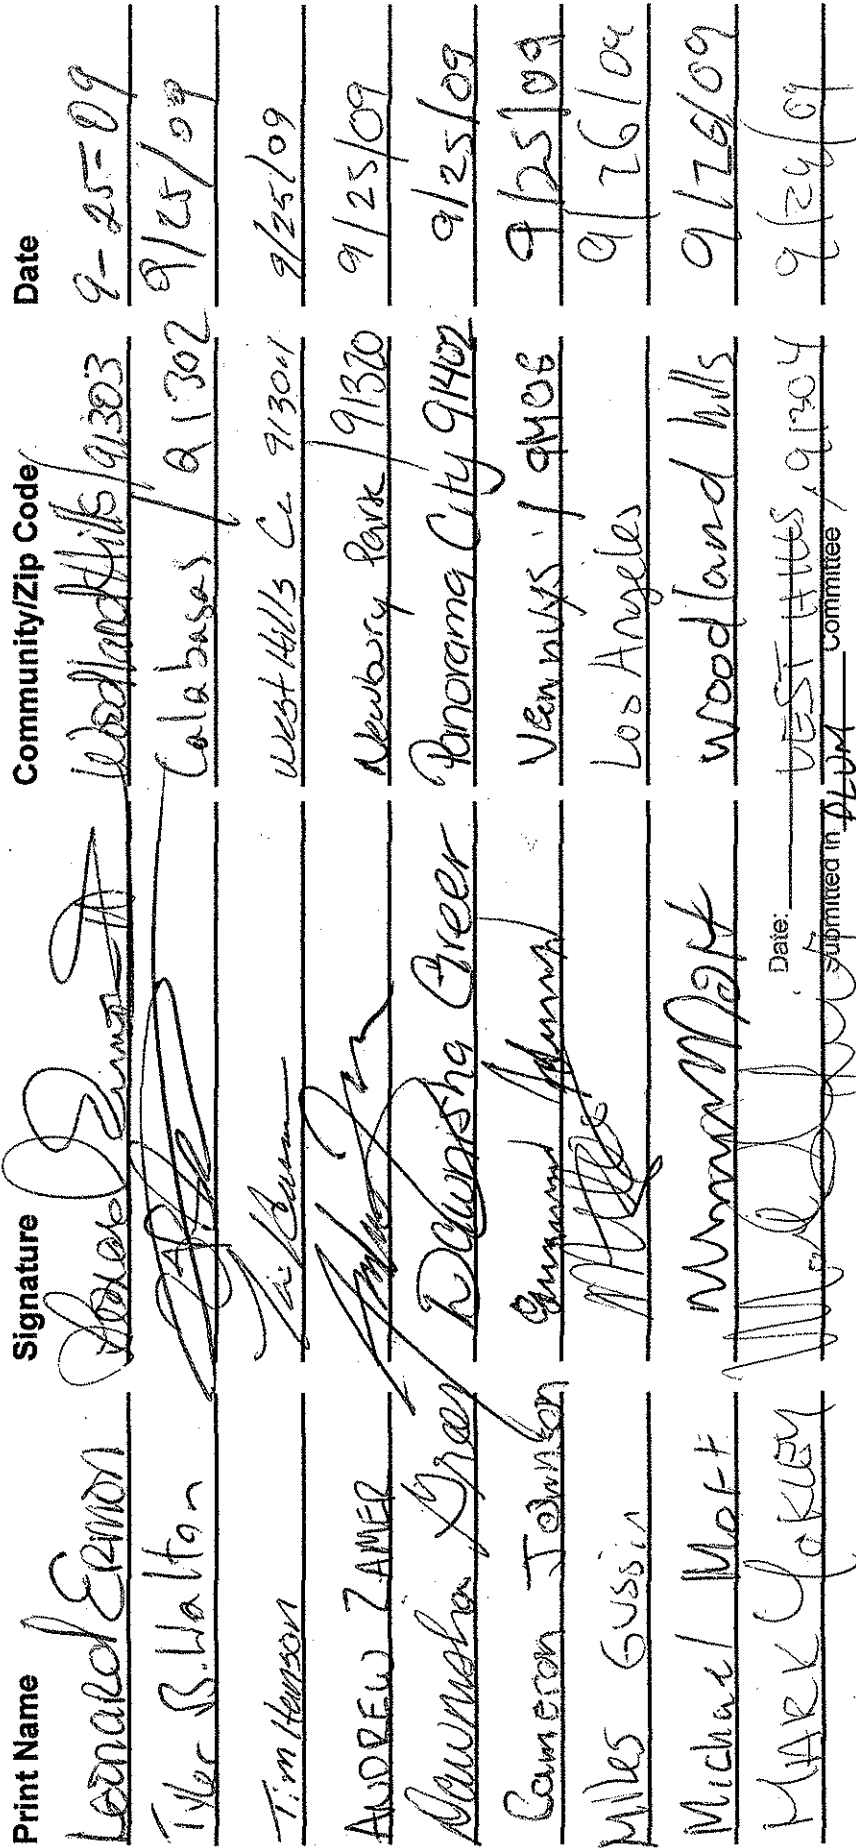 Print Name Signature Community/Zip Code Date
Leonard Erimon Woodland Hills/91303 9-25-09
Tyler B. Walton Calabasas / 91302 9/25/09
Tim Henson West Hills Ca 91304 9/25/09
ANDREW ZAMER Newbury Park / 91320 9/25/09
Dawnisha Greer Dawnisha Greer Panorama City 91402 9/25/09
Cameron Johnson Van nuys / 91406 9/25/09
Miles Gussin Los Angeles 9/26/09
Michael Mott Woodland hills 9/26/09
MARK YOKLEY WEST HILLS, 91304 9/29/09
Date:
Submitted in PLUM Committee